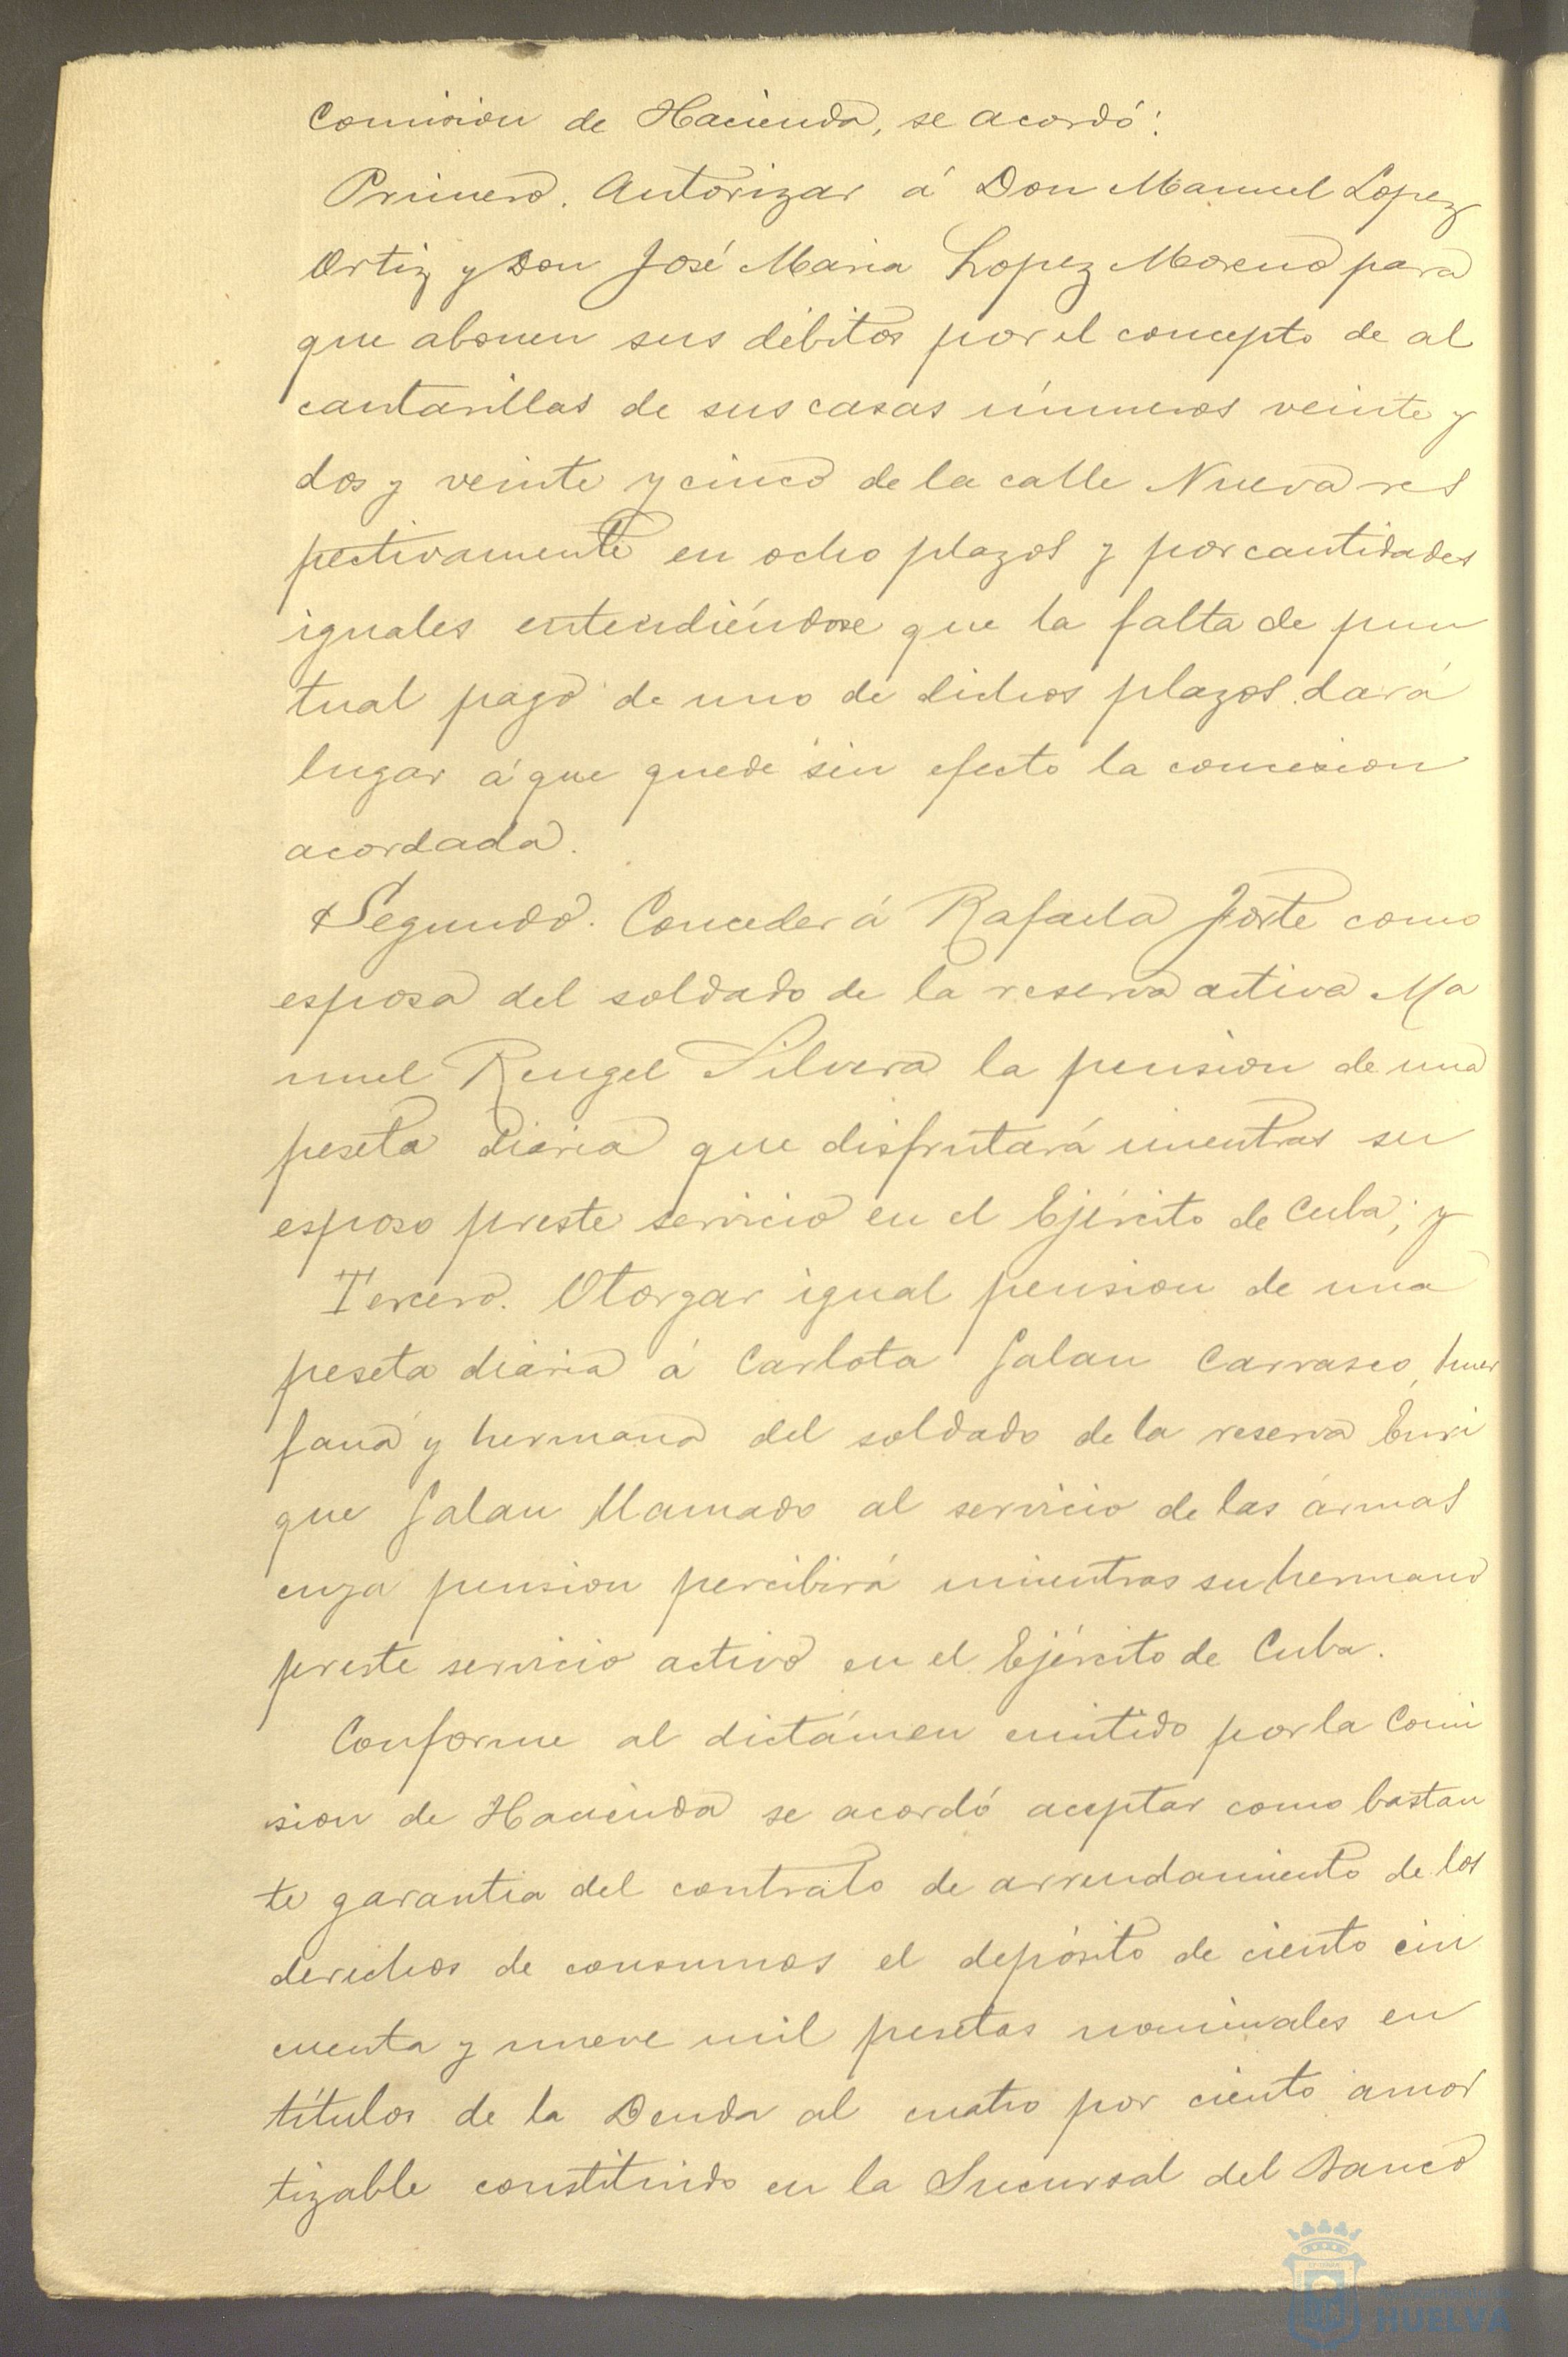 Comision de Hacienda, se acordó:
Primero. Autorizar á Don Manuel Lopez
Ortiz y Don José Maria Lopez Moreno para
que abonen sus débitos por el concepto de al
cantarillas de sus casas números veinte y
dos y veinte y cinco de la calle Nueva res
pectivamente en ocho plazos y por cantidades
iguales entendiéndose que la falta de pun
tual pago de uno de dichos plazos dará
lugar á que quede sin efecto la concesion
acordada.
Segundo. Conceder á Rafaela Forte como
esposa del soldado de la reserva activa Ma
nuel Rengel Silvera la pension de una
peseta diaria que disfrutará mientras su
esposo preste servicio en el Ejército de Cuba; y
Tercero. Otorgar igual pension de una
peseta diaria á Carlota Galan Carrasco, huer
fana y hermana del soldado de la reserva Enri
que Galan llamado al servicio de las armas
cuya pension percibirá mientras su hermano
preste servicio activo en el Ejército de Cuba.
Conforme al dictámen emitido por la Comi
sion de Hacienda se acordó aceptar como bastan
te garantia del contrato de arrendamiento de los
derechos de consumos el depósito de ciento cin
cuenta y nueve mil pesetas nominales en
títulos de la Deuda al cuatro por ciento amor
tizable constituido en la Sucursal del Banco
HUELVA